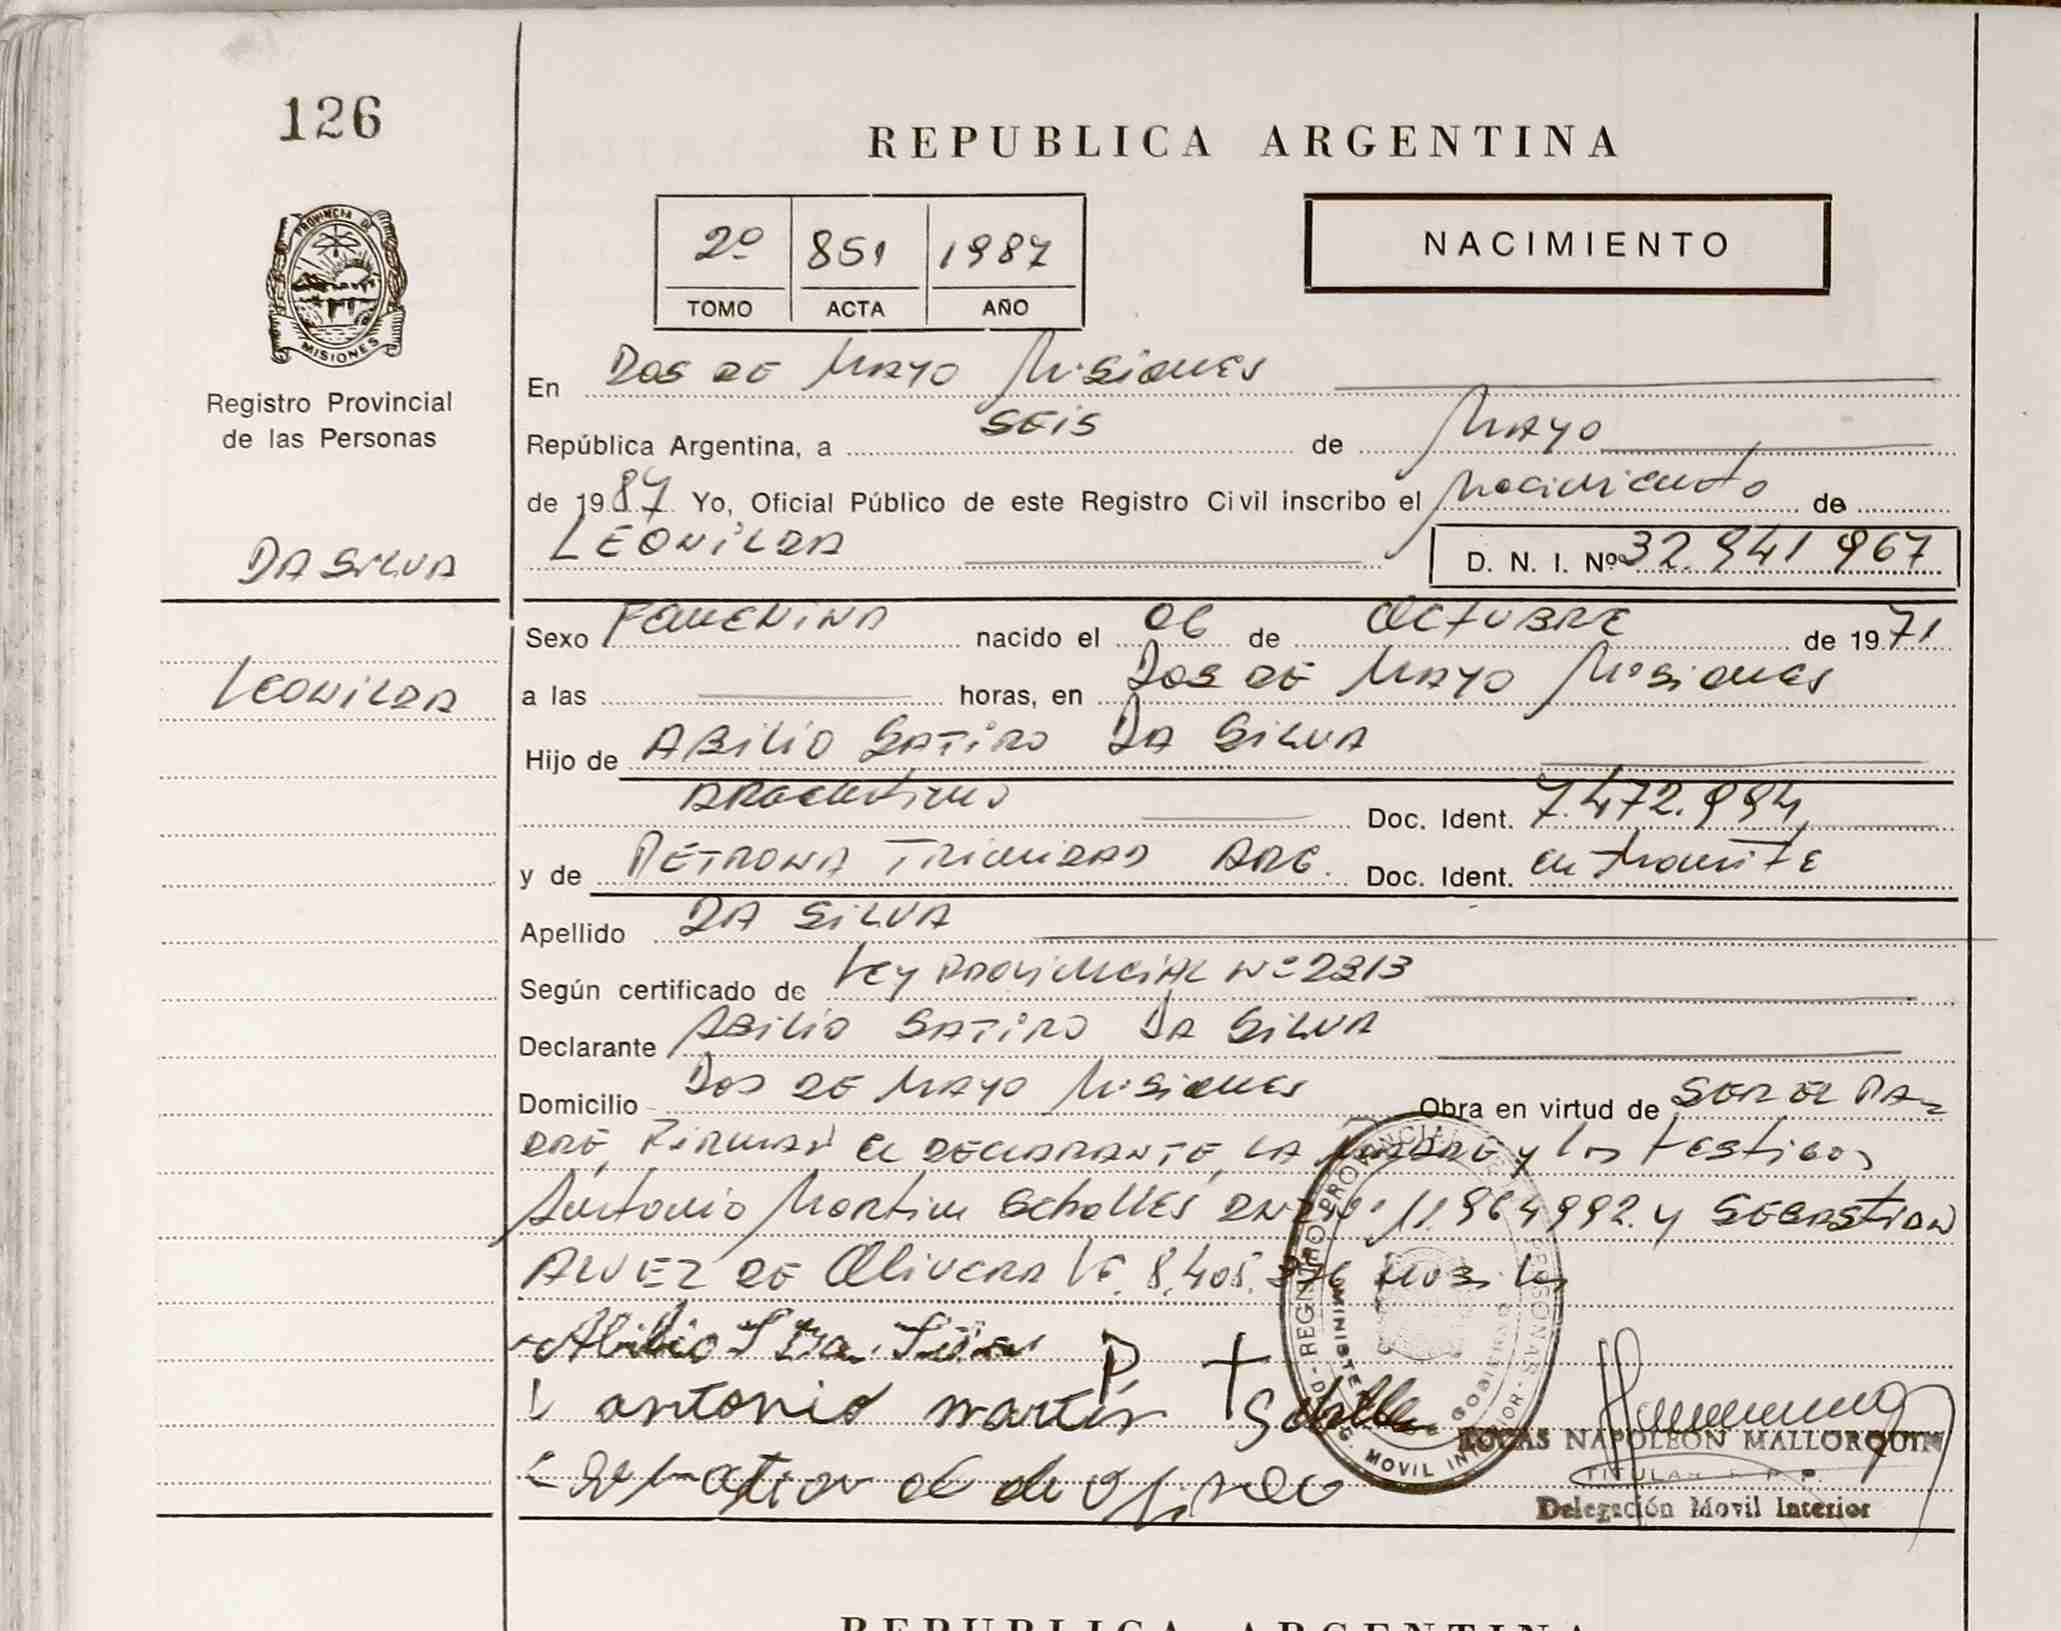 126
REPUBLICA ARGENTINA
PROVINCIA DE
MISIONES
Registro Provincial
de las Personas
2º 851 1987
TOMO ACTA AÑO
NACIMIENTO
En Dos de Mayo Misiones
República Argentina, a seis de Mayo
de 1987 Yo, Oficial Público de este Registro Civil inscribo el Nacimiento de
DA SILVA
LEONILDA
D. N. I. Nº 32.941967
Sexo Femenina nacido el 06 de Octubre de 1971
LEONILDA
a las horas, en Dos de Mayo Misiones
Hijo de Abilio Satiro Da Silva
Argentino Doc. Ident. 7.472.994
y de Petrona Trinidad Arg. Doc. Ident. en tramite
Apellido Da Silva
Según certificado de Ley Provincial Nº 2313
Declarante Abilio Satiro Da Silva
Domicilio Dos de Mayo Misiones Obra en virtud de ser el Pa-
dre, Firman el declarante, la Madre y los testigos
Antonio Martin Scholles DNI Nº 11.964992. y Sebastian
Alvez de Olivera LE. 8.405.
Abilio S Da Silva
P. +
antonio martin
REGISTRO PROVINCIAL DE PERSONAS
MINISTE GOBIERNO
DELEG. MOVIL INTERIOR
LUCAS NAPOLEON MALLORQUIN
TITULAR
Delegación Movil Interior
REPUBLICA ARGENTINA